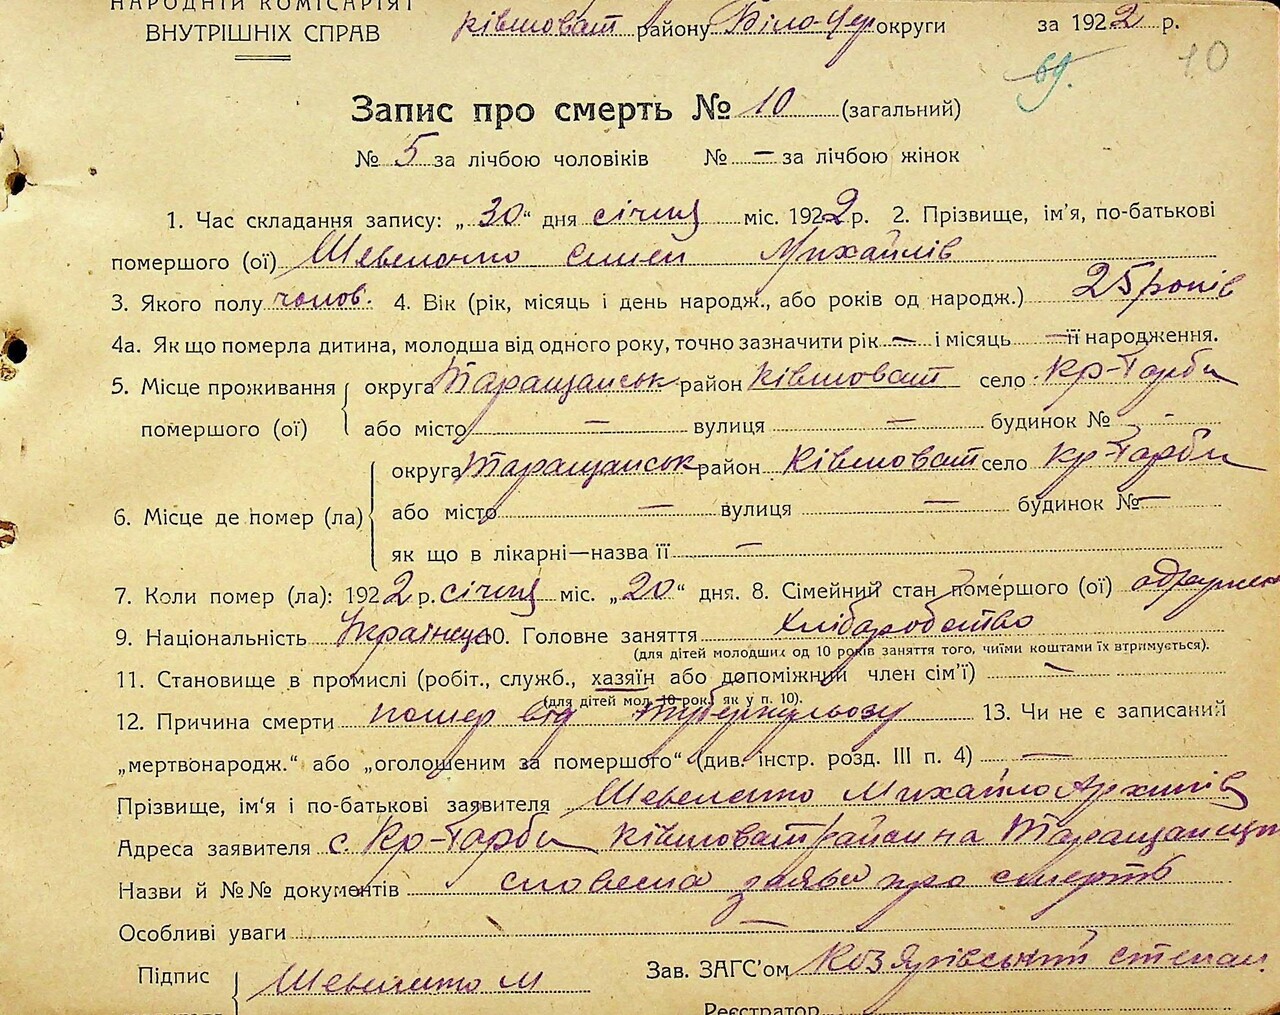 НАРОДНІЙ КОМІСАРІЯТ
ВНУТРІШНІХ СПРАВ
Ківшоват району Біло-Чер округи за 1922 р.
69. 10
Запис про смерть № 10 (загальний)
№ 5 за лічбою чоловіків № — за лічбою жінок
1. Час складання запису: „30“ дня січня міс. 1922 р. 2. Прізвище, ім'я, по-батькові
помершого (ої) Михайлів
3. Якого полу чолов. 4. Вік (рік, місяць і день народж., або років од народж.) 25 років
4а. Як що померла дитина, молодша від одного року, точно зазначити рік — і місяць — її народження.
5. Місце проживання округа Таращанськ район Ківшоват село Кр-Гарби
помершого (ої) або місто — вулиця — будинок № -
округа Таращанськ район Ківшоват село Кр-Гарби
6. Місце де помер (ла) або місто — вулиця — будинок № —
як що в лікарні—назва її —
7. Коли помер (ла): 1922 р. січня міс. „20“ дня. 8. Сімейний стан помершого (ої)
9. Національність Українець 10. Головне заняття хліборобство
(для дітей молодших од 10 років заняття того, чиїми коштами їх втримується).
11. Становище в промислі (робіт., служб., хазяїн або допоміжний член сім'ї) —
(для дітей мол. 10 рок. як у п. 10).
12. Причина смерти помер від туберкульозу 13. Чи не є записаний
„мертвонародж.“ або „оголошеним за помершого“ (див. інстр. розд. III п. 4) —
Прізвище, ім'я і по-батькові заявителя Михайло Архипів
Адреса заявителя с. Кр-Гарби Ківшоват район на Таращанщ
Назви й №№ документів словесна заява про смерть
Особливі уваги —
Підпис Зав. ЗАГС'ом Козяровський Степан.
Реєстратор